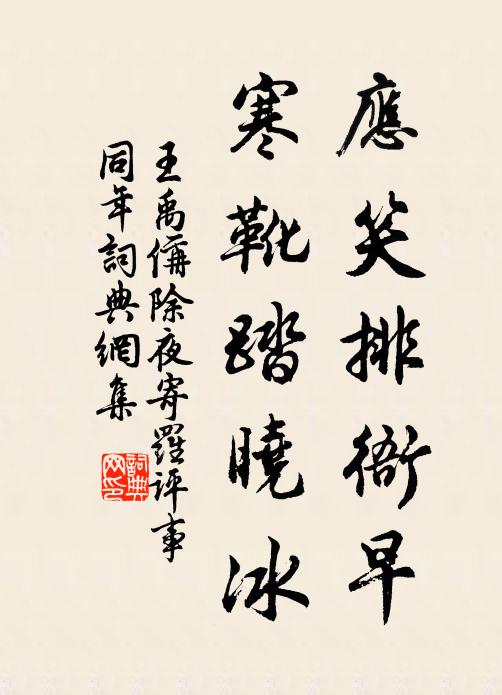 應笑排衙早
寒靴踏曉冰
王禹偁除夜寄羅評事
同年詞典網集
詞典
網印